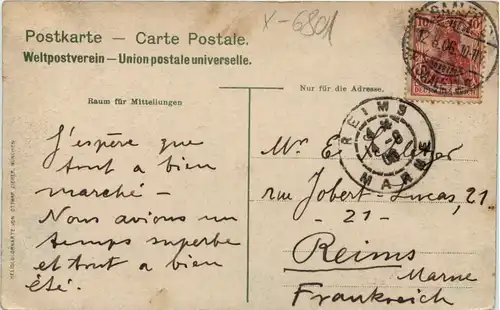 X-6801
Postkarte — Carte Postale.
Weltpostverein — Union postale universelle.
Raum für Mitteilungen
Nur für die Adresse.
10 10
8.06.10-11
REIMS
MARNE
J'espère que
tout a bien
marché —
Nous avions un
temps superbe
et tout a bien
été.
Mr. E.
rue Jobert-Lucas, 21
- 21 -
Reims
Marne
Frankreich